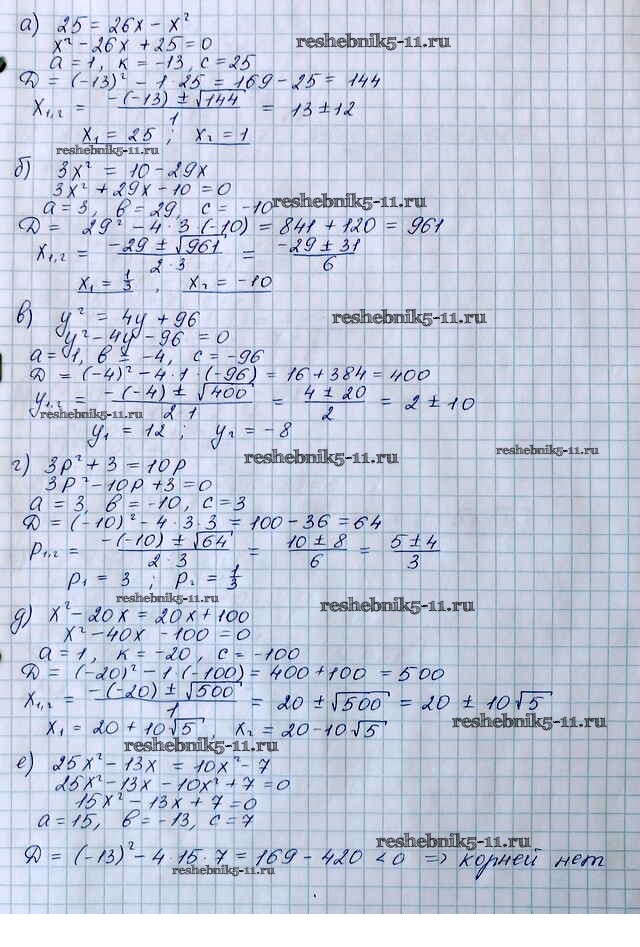 а) 25 = 26x - x²
x² - 26x + 25 = 0
reshebnik5-11.ru
a = 1, к = -13, c = 25
D = (-13)² - 1 · 25 = 169 - 25 = 144
x₁,₂ = (-(-13) ± √144)/1 = 13 ± 12
x₁ = 25 ; x₂ = 1
reshebnik5-11.ru
б) 3x² = 10 - 29x
3x² + 29x - 10 = 0
a = 3, в = 29, c = -10
reshebnik5-11.ru
D = 29² - 4 · 3 · (-10) = 841 + 120 = 961
x₁,₂ = (-29 ± √961)/(2 · 3) = (-29 ± 31)/6
x₁ = 1/3 , x₂ = -10
в) y² = 4y + 96
reshebnik5-11.ru
y² - 4y - 96 = 0
a = 1, в = -4, c = -96
D = (-4)² - 4 · 1 · (-96) = 16 + 384 = 400
y₁,₂ = (-(-4) ± √400)/(2 · 1) = (4 ± 20)/2 = 2 ± 10
reshebnik5-11.ru
y₁ = 12 ; y₂ = -8
reshebnik5-11.ru
г) 3p² + 3 = 10p
reshebnik5-11.ru
3p² - 10p + 3 = 0
a = 3, в = -10, c = 3
D = (-10)² - 4 · 3 · 3 = 100 - 36 = 64
p₁,₂ = (-(-10) ± √64)/(2 · 3) = (10 ± 8)/6 = (5 ± 4)/3
p₁ = 3 ; p₂ = 1/3
reshebnik5-11.ru
reshebnik5-11.ru
д) x² - 20x = 20x + 100
x² - 40x - 100 = 0
a = 1, к = -20, c = -100
D = (-20)² - 1 · (-100) = 400 + 100 = 500
x₁,₂ = (-(-20) ± √500)/1 = 20 ± √500 = 20 ± 10√5
reshebnik5-11.ru
x₁ = 20 + 10√5 , x₂ = 20 - 10√5
reshebnik5-11.ru
е) 25x² - 13x = 10x² - 7
25x² - 13x - 10x² + 7 = 0
15x² - 13x + 7 = 0
a = 15, в = -13, c = 7
reshebnik5-11.ru
D = (-13)² - 4 · 15 · 7 = 169 - 420 < 0 ⇒ корней нет
reshebnik5-11.ru